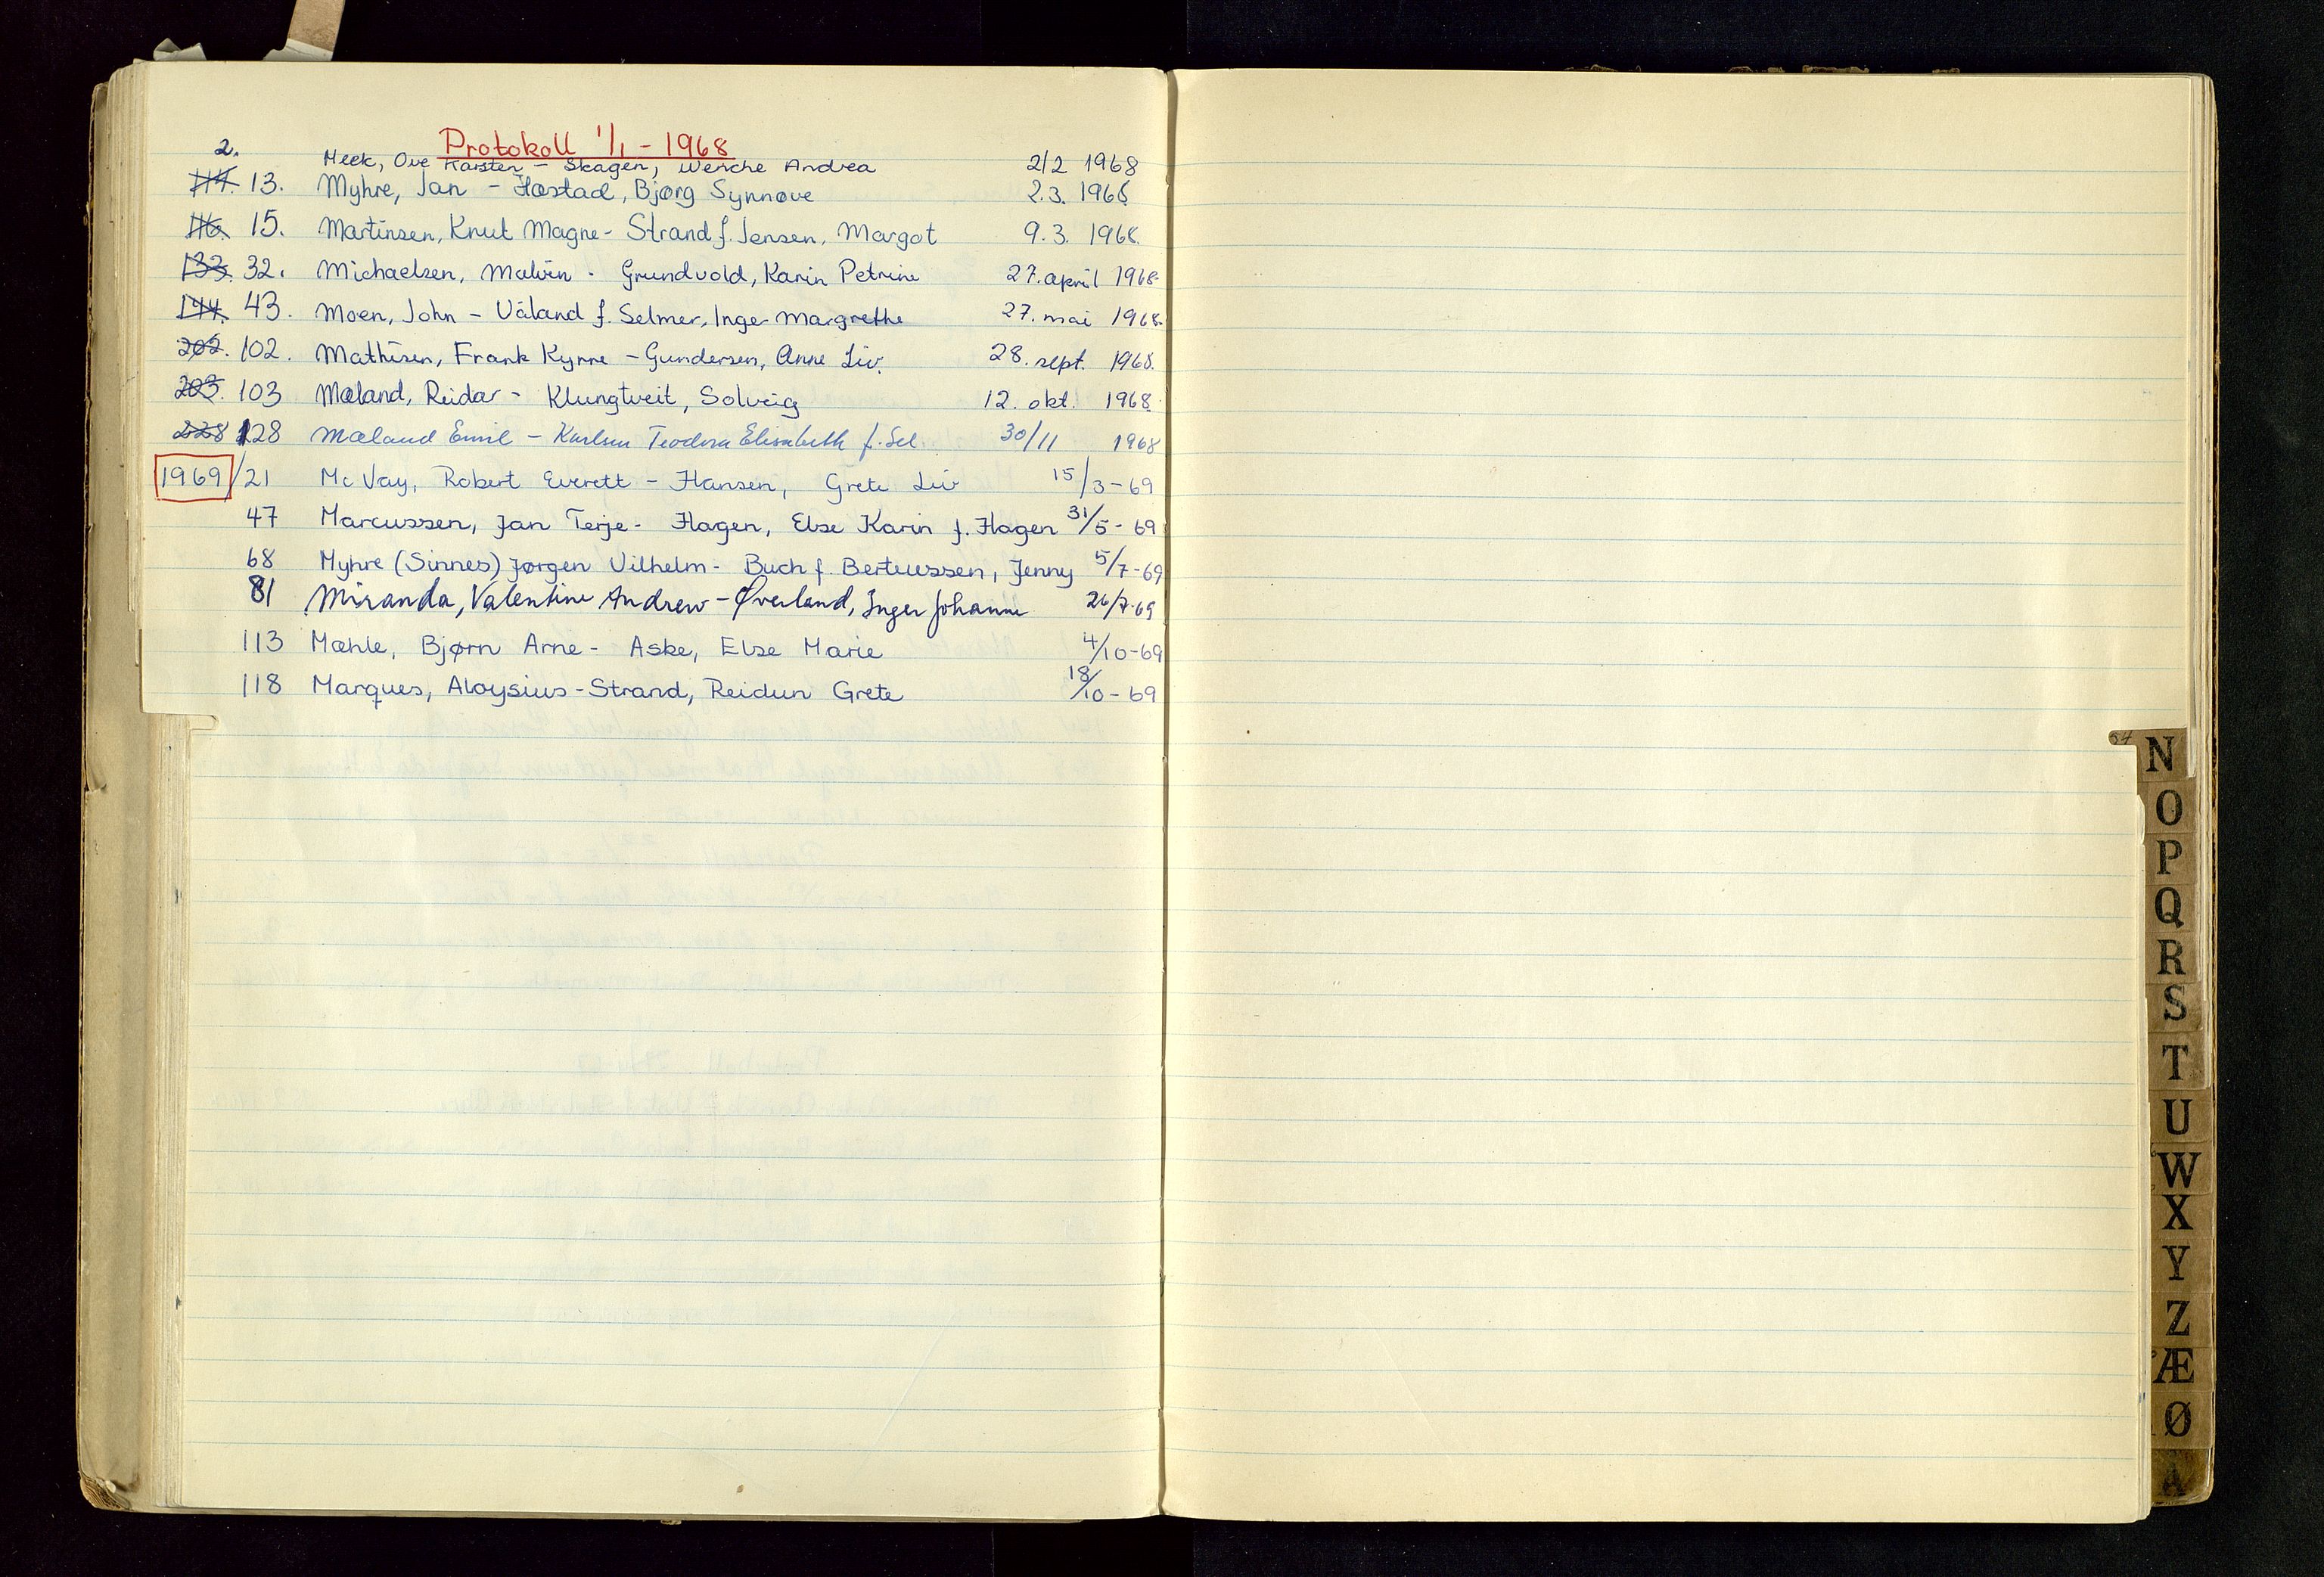 Protokoll 1/1 - 1968
2. Meek, Ove Karsten - Skagen, Wenche Andrea 2/2 1968
114. 13. Myhre, Jan - Hæstad, Bjørg Synnøve 2.3. 1968
116. 15. Martinsen, Knut Magne - Strand f. Jensen, Margot 9.3. 1968
133. 32. Michaelsen, Malvin - Grundvold, Karin Petrine 27. april 1968
144. 43. Moen, John - Våland f. Selmer, Inger Margrethe 27. mai 1968.
202. 102. Mathisen, Frank Kyrre - Gundersen, Anne Liv. 28. sept. 1968.
203. 103 Mæland, Reidar - Klungtveit, Solveig 12. okt. 1968
228 128 Mæland Emil - Karlsen Teodora Elisabeth f. Sel. 30/11 1968
1969/21 Mc Vay, Robert Everett - Hansen, Grete Liv 15/3-69
47 Marcussen, Jan Terje - Hagen, Else Karin f. Hagen 31/5-69
68 Myhre (Sinnes) Jørgen Vilhelm - Buch f. Berteussen, Jenny 5/7-69
81 Miranda, Valentine Andrew - Øverland, Inger Johanne 26/7-69
113 Mæhle, Bjørn Arne - Aske, Else Marie 4/10-69
118 Marques, Aloysius - Strand, Reidun Grete 18/10-69
N
O
P
Q
R
S
T
U
W
X
Y
Z
Æ
Ø
Å